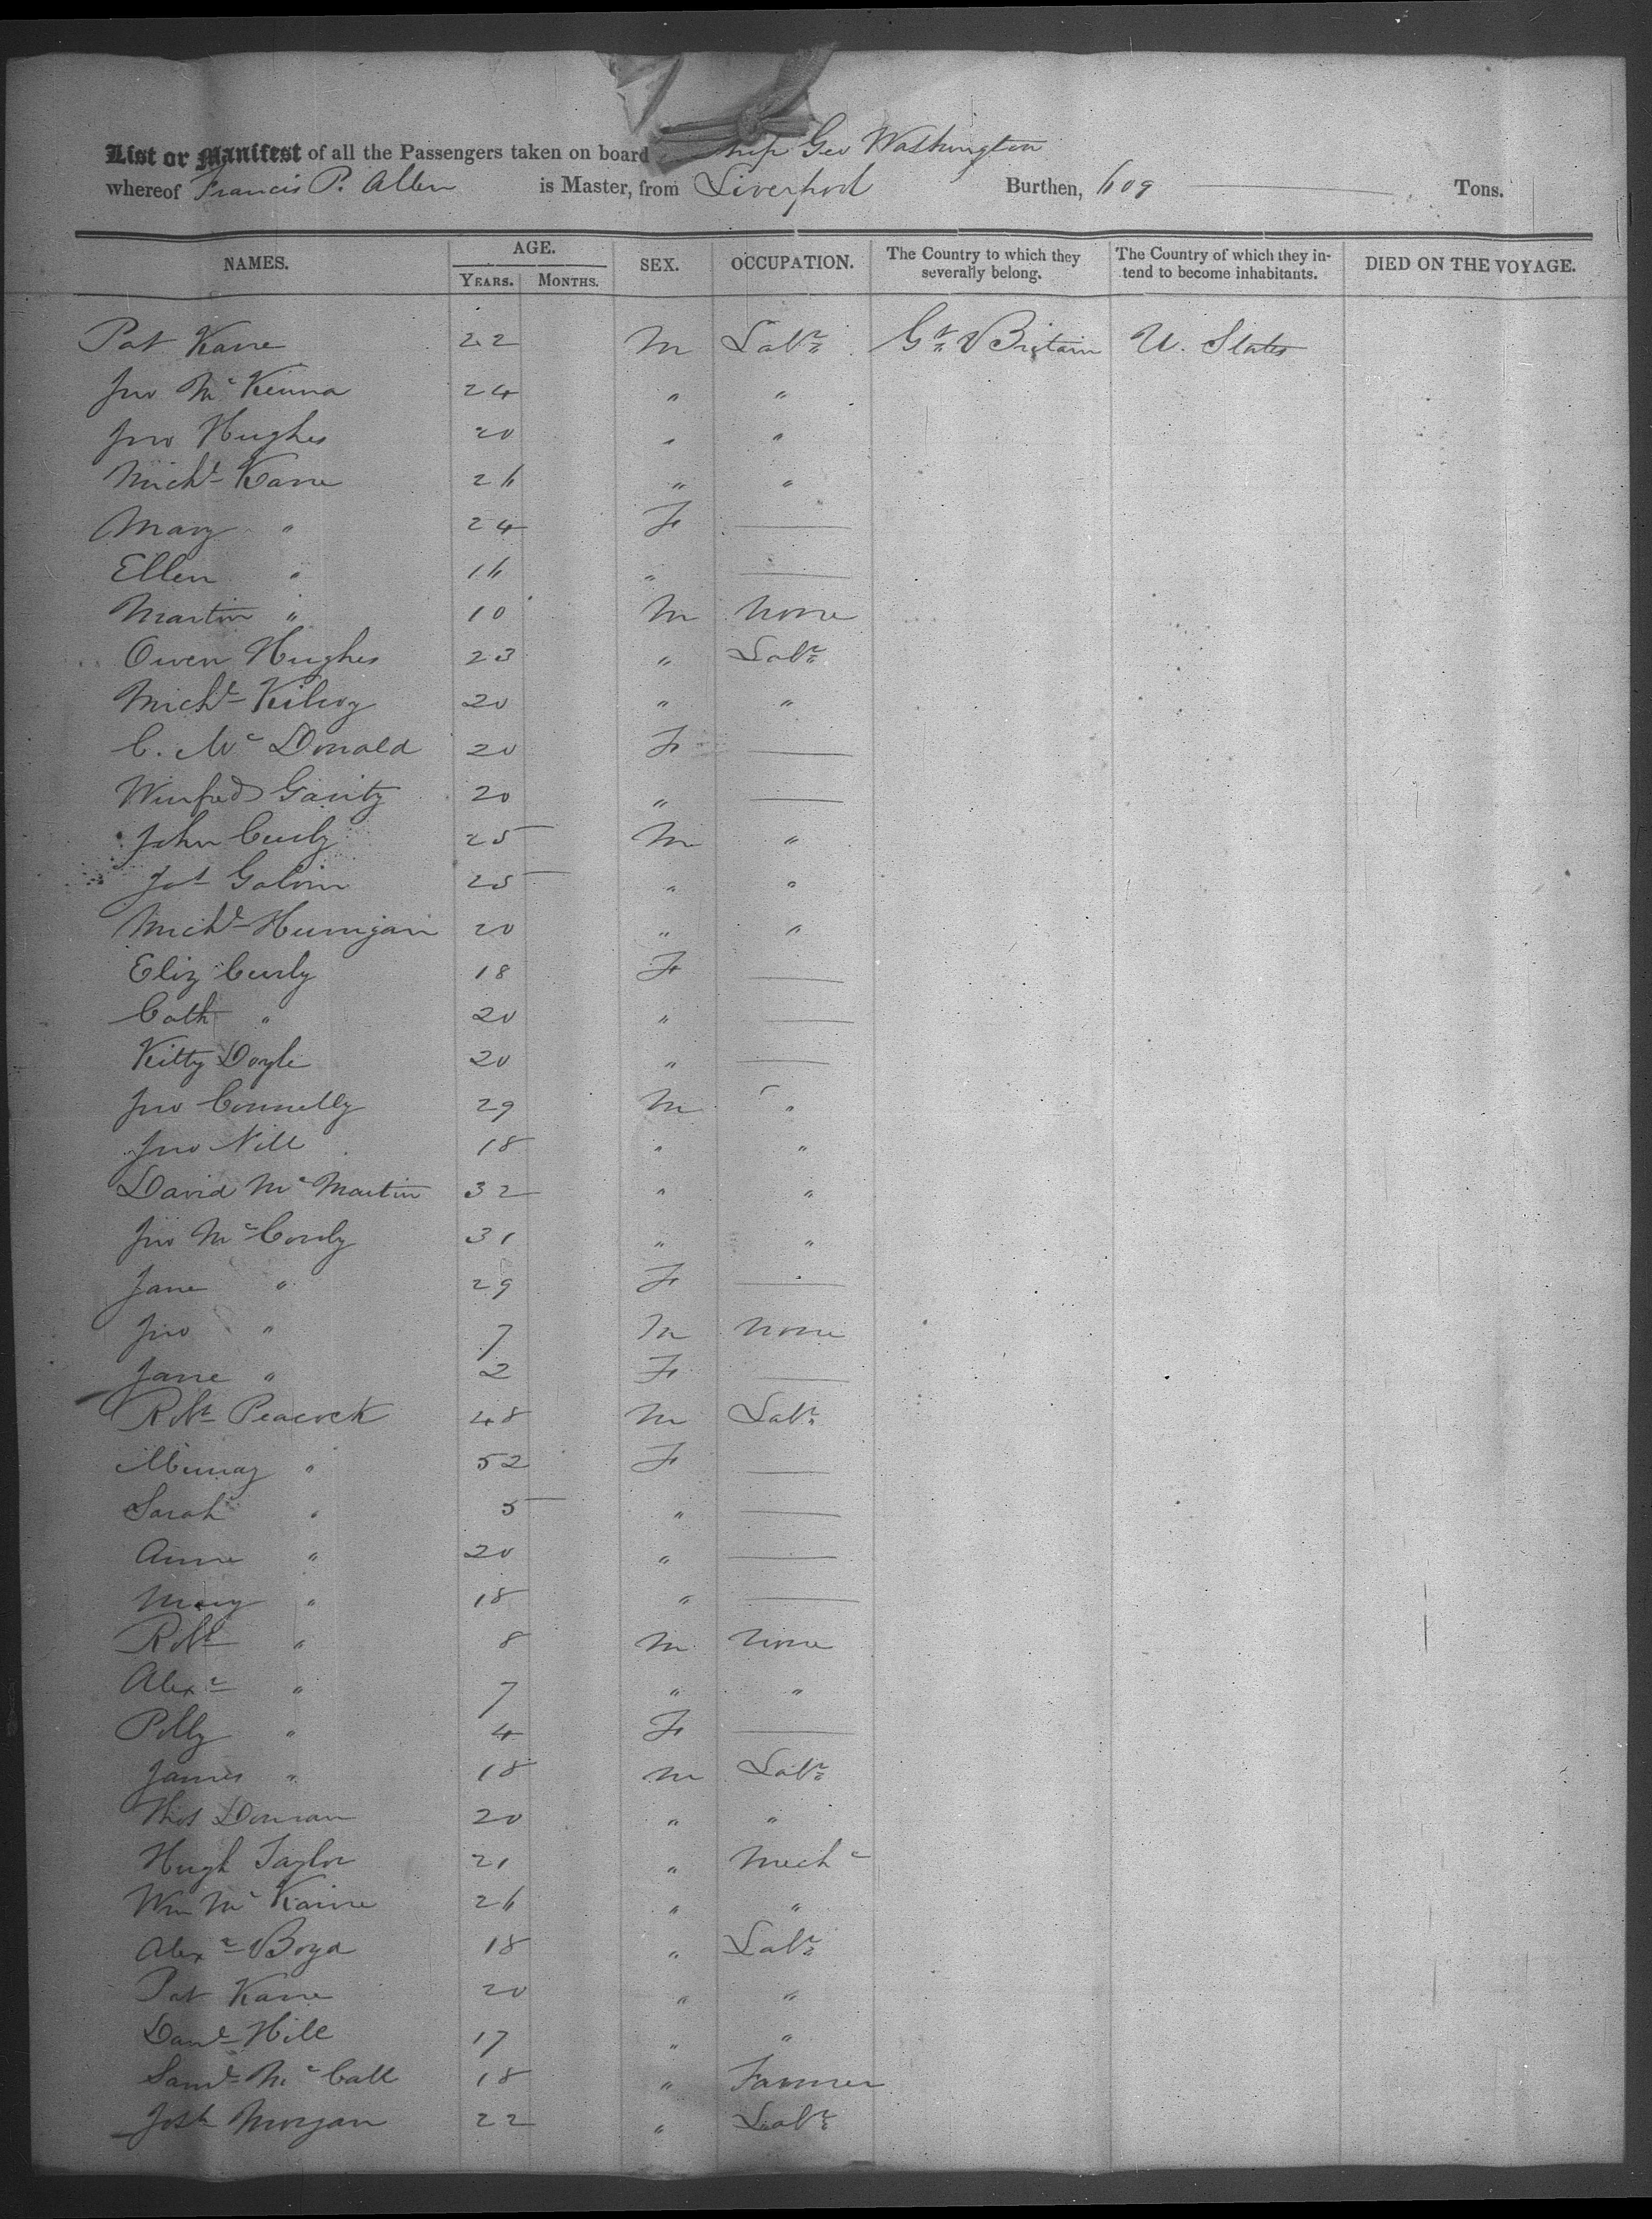 List or Manifest of all the Passengers taken on board Ship Geo Washington
whereof Francis P. Allen is Master, from Liverpool Burthen, 609 Tons.
NAMES. AGE. SEX. OCCUPATION. The Country to which they severally belong. The Country of which they intend to become inhabitants. DIED ON THE VOYAGE.
YEARS. MONTHS.
Pat Kane 22 M Labr Gt Britain U. States
Jno McKenna 24 " "
Jno Hughes 20 " "
Michl Kane 26 " "
Mary " 24 F —
Ellen " 16 " —
Martin " 10 M none
Owen Hughes 23 " Labr
Michl Kilroy 20 " "
C. McDonald 20 F —
Winfred Garity 20 " —
John Curly 25 M "
Jas Galvin 25 " "
Michl 20 " "
Eliz Curly 18 F —
Cath " 20 " —
Kitty Doyle 20 " —
Jno Connelly 29 M "
Jno Nill 18 " "
David McMartin 32 " "
Jno 31 " "
Jane " 29 F —
Jno " 7 M none
Jane " 2 F —
Robt Peacock 48 M Labr
" 52 F —
Sarah " 5 " —
Anne " 20 " —
Mary " 18 " —
Robt " 8 M none
Alexr " 7 " "
Polly " 4 F —
James " 18 M Labr
Thos 20 " "
Hugh Taylor 21 " Mechc
Wm McKaine 26 " "
Alexr Boyd 18 " Labr
Pat Kane 20 " "
Danl Hill 17 " "
Saml McCall 18 " Farmer
Josh Morgan 22 " Labr